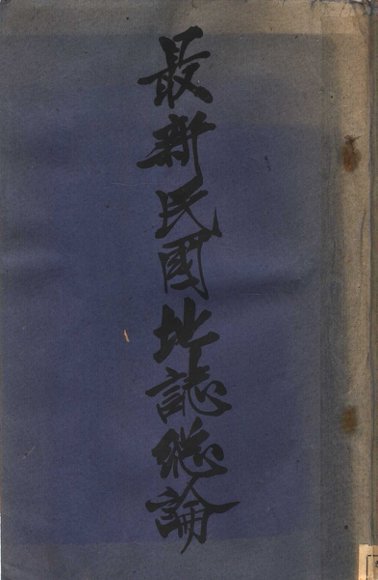 最新民國地誌總論